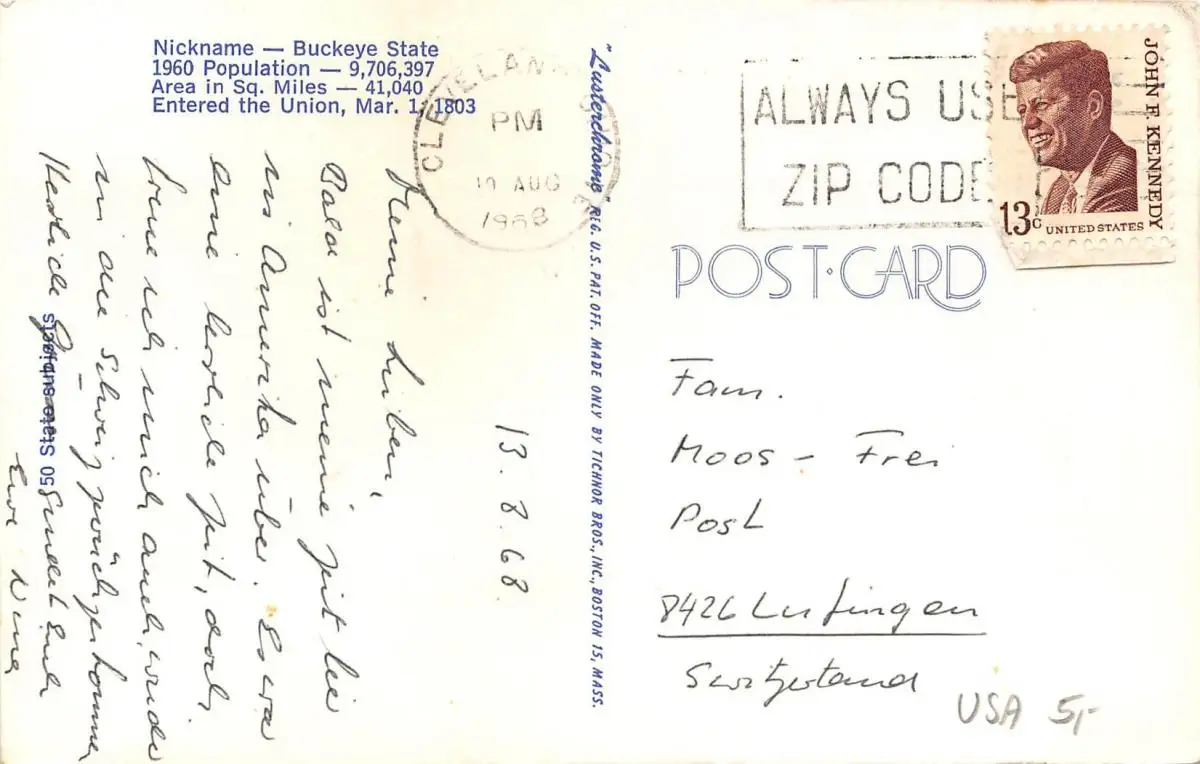 Nickname — Buckeye State
1960 Population — 9,706,397
Area in Sq. Miles — 41,040
Entered the Union, Mar. 1, 1803
CLEVELAND
PM
AUG
1968
ALWAYS USE
ZIP CODE
JOHN F. KENNEDY
13c
UNITED STATES
"Lusterchrome" REG. U.S. PAT. OFF. MADE ONLY BY TICHNOR BROS., INC., BOSTON 15, MASS.
POST-CARD
13.8.68
Meine Lieben,
Bald ist meine Zeit hie
in Amerika über. Es war
eine herrliche Zeit, doch
freue ich mich auch, wieder
in die Schweiz zurückzukommen
Herzliche
sendet Euch
Eure
50 State subjects
Fam.
Moos - Frei
Post
8426 Lufingen
Switzerland
USA 5,-